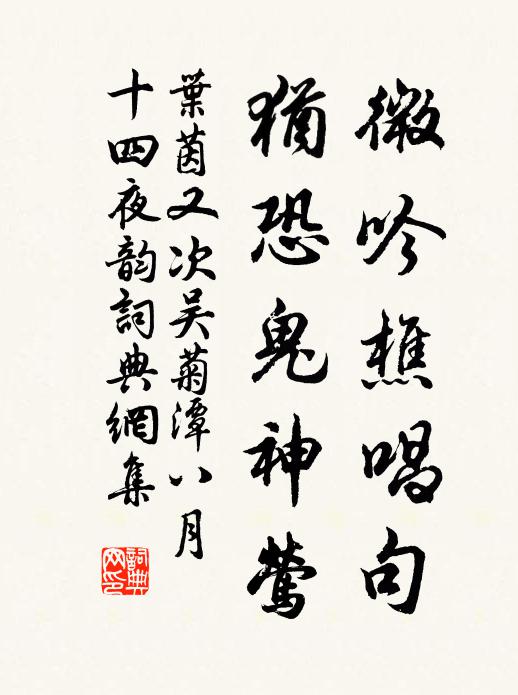 微吟樵唱句
猶恐鬼神鶯
葉茵又次吳菊潭八月
十四夜韵詞典網集
詞典网印